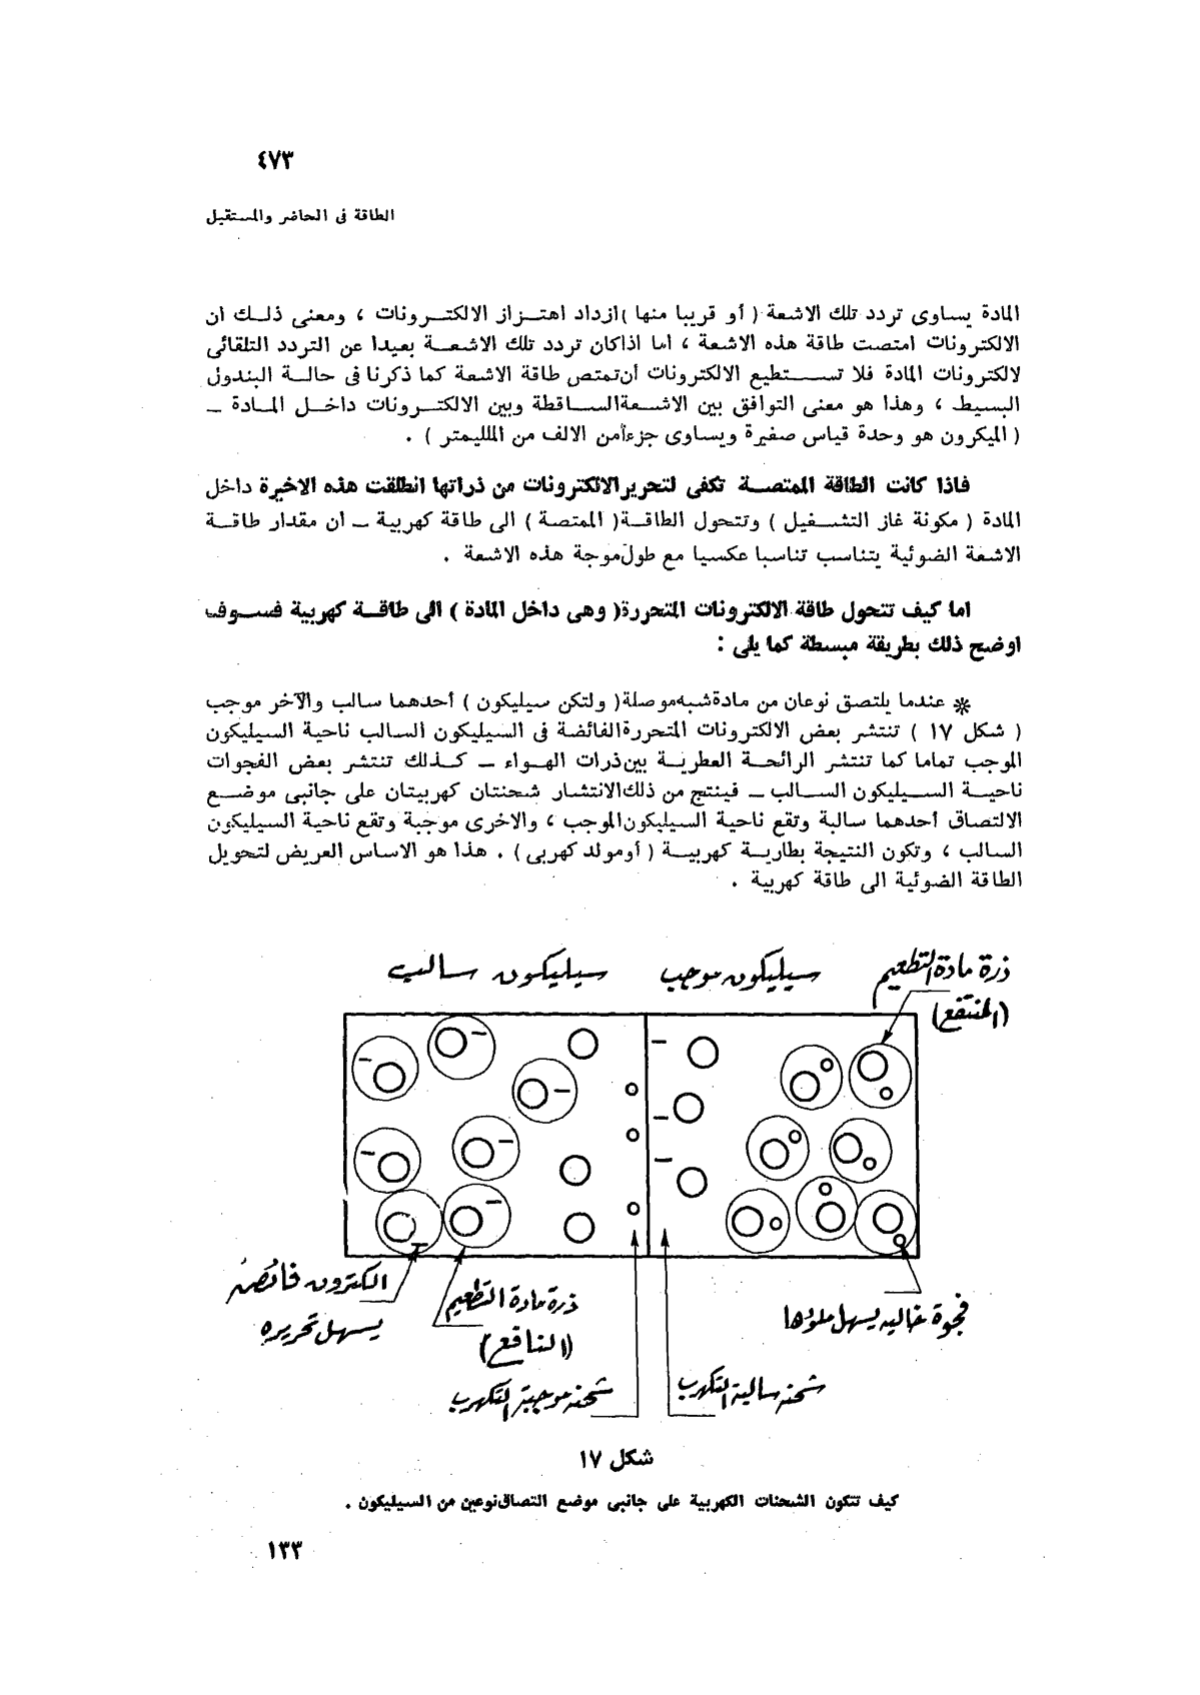 ٤٧٣
الطاقة فى الحاضر والمستقيل
المادة يساوى تردد تلك الاشعة ( أو قريبا منها ) ازداد اهتـزاز الالكتـرونات ، ومعنى ذلـك ان
الالكترونات امتصت طاقة هذه الاشعة ، اما اذاكان تردد تلك الاشعـة بعيدا عن التردد التلقائى
لالكترونات المادة فلا تستطيع الالكترونات أن تمتص طاقة الاشعة كما ذكرنا فى حالـة البندول
البسيط ، وهذا هو معنى التوافق بين الاشعة الساقطة وبين الالكترونات داخـل المـادة ـ
( الميكرون هو وحدة قياس صغيرة ويساوى جزءا من الالف من الملليمتر ) .
فاذا كانت الطاقة الممتصـة تكفى لتحرير الالكترونات من ذراتها انطلقت هذه الاخيرة داخل
المادة ( مكونة غاز التشـغيل ) وتتحول الطاقـة ( الممتصة ) الى طاقة كهربية ـ ان مقدار طاقـة
الاشعة الضوئية يتناسب تناسبا عكسيا مع طول موجة هذه الاشعة .
اما كيف تتحول طاقة الالكترونات المتحررة ( وهى داخل المادة ) الى طاقـة كهربية فسـوف
اوضح ذلك بطريقة مبسطة كما يلى :
* عندما يلتصق نوعان من مادة شبه موصلة ( ولتكن سيليكون ) أحدهما سالب والآخر موجب
( شكل ١٧ ) تنتشر بعض الالكترونات المتحررة الفائضة فى السيليكون السالب ناحية السيليكون
الموجب تماما كما تنتشر الرائحـة العطريـة بين ذرات الهـواء ـ كـذلك تنتشر بعض الفجوات
ناحيـة السـيليكون السـالب ـ فينتج من ذلك الانتشار شحنتان كهربيتان على جانبى موضـع
الالتصاق أحدهما سالبة وتقع ناحية السيليكون الموجب ، والاخرى موجبة وتقع ناحية السيليكون
السالب ، وتكون النتيجة بطاريـة كهربيـة ( أو مولد كهربى ) . هذا هو الاساس العريض لتحويل
الطاقة الضوئية الى طاقة كهربية .
ذرة مادة التطعيم
(المنتفع)
سيليكون موجب
سيليكون سالب
الكترون فائض
يسهل تحريره
ذرة مادة التطعيم
(النافع)
فجوة خاليه يسهل ملؤها
شحنه سالبة التكهرب
شحنه موجبة التكهرب
شكل ١٧
كيف تتكون الشحنات الكهربية على جانبى موضع التصاق نوعين من السيليكون .
١٣٣